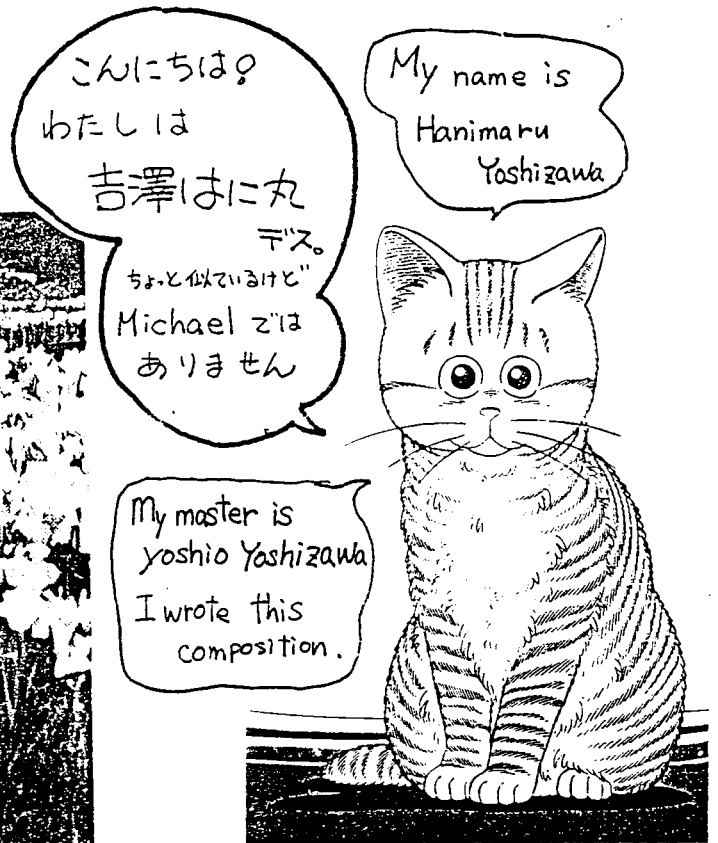 こんにちは！
わたしは
吉澤はに丸
デス。
ちょっと似ているけど
Michael では
ありません
My name is
Hanimaru
Yoshizawa
My master is
yoshio Yoshizawa
I wrote this
composition.